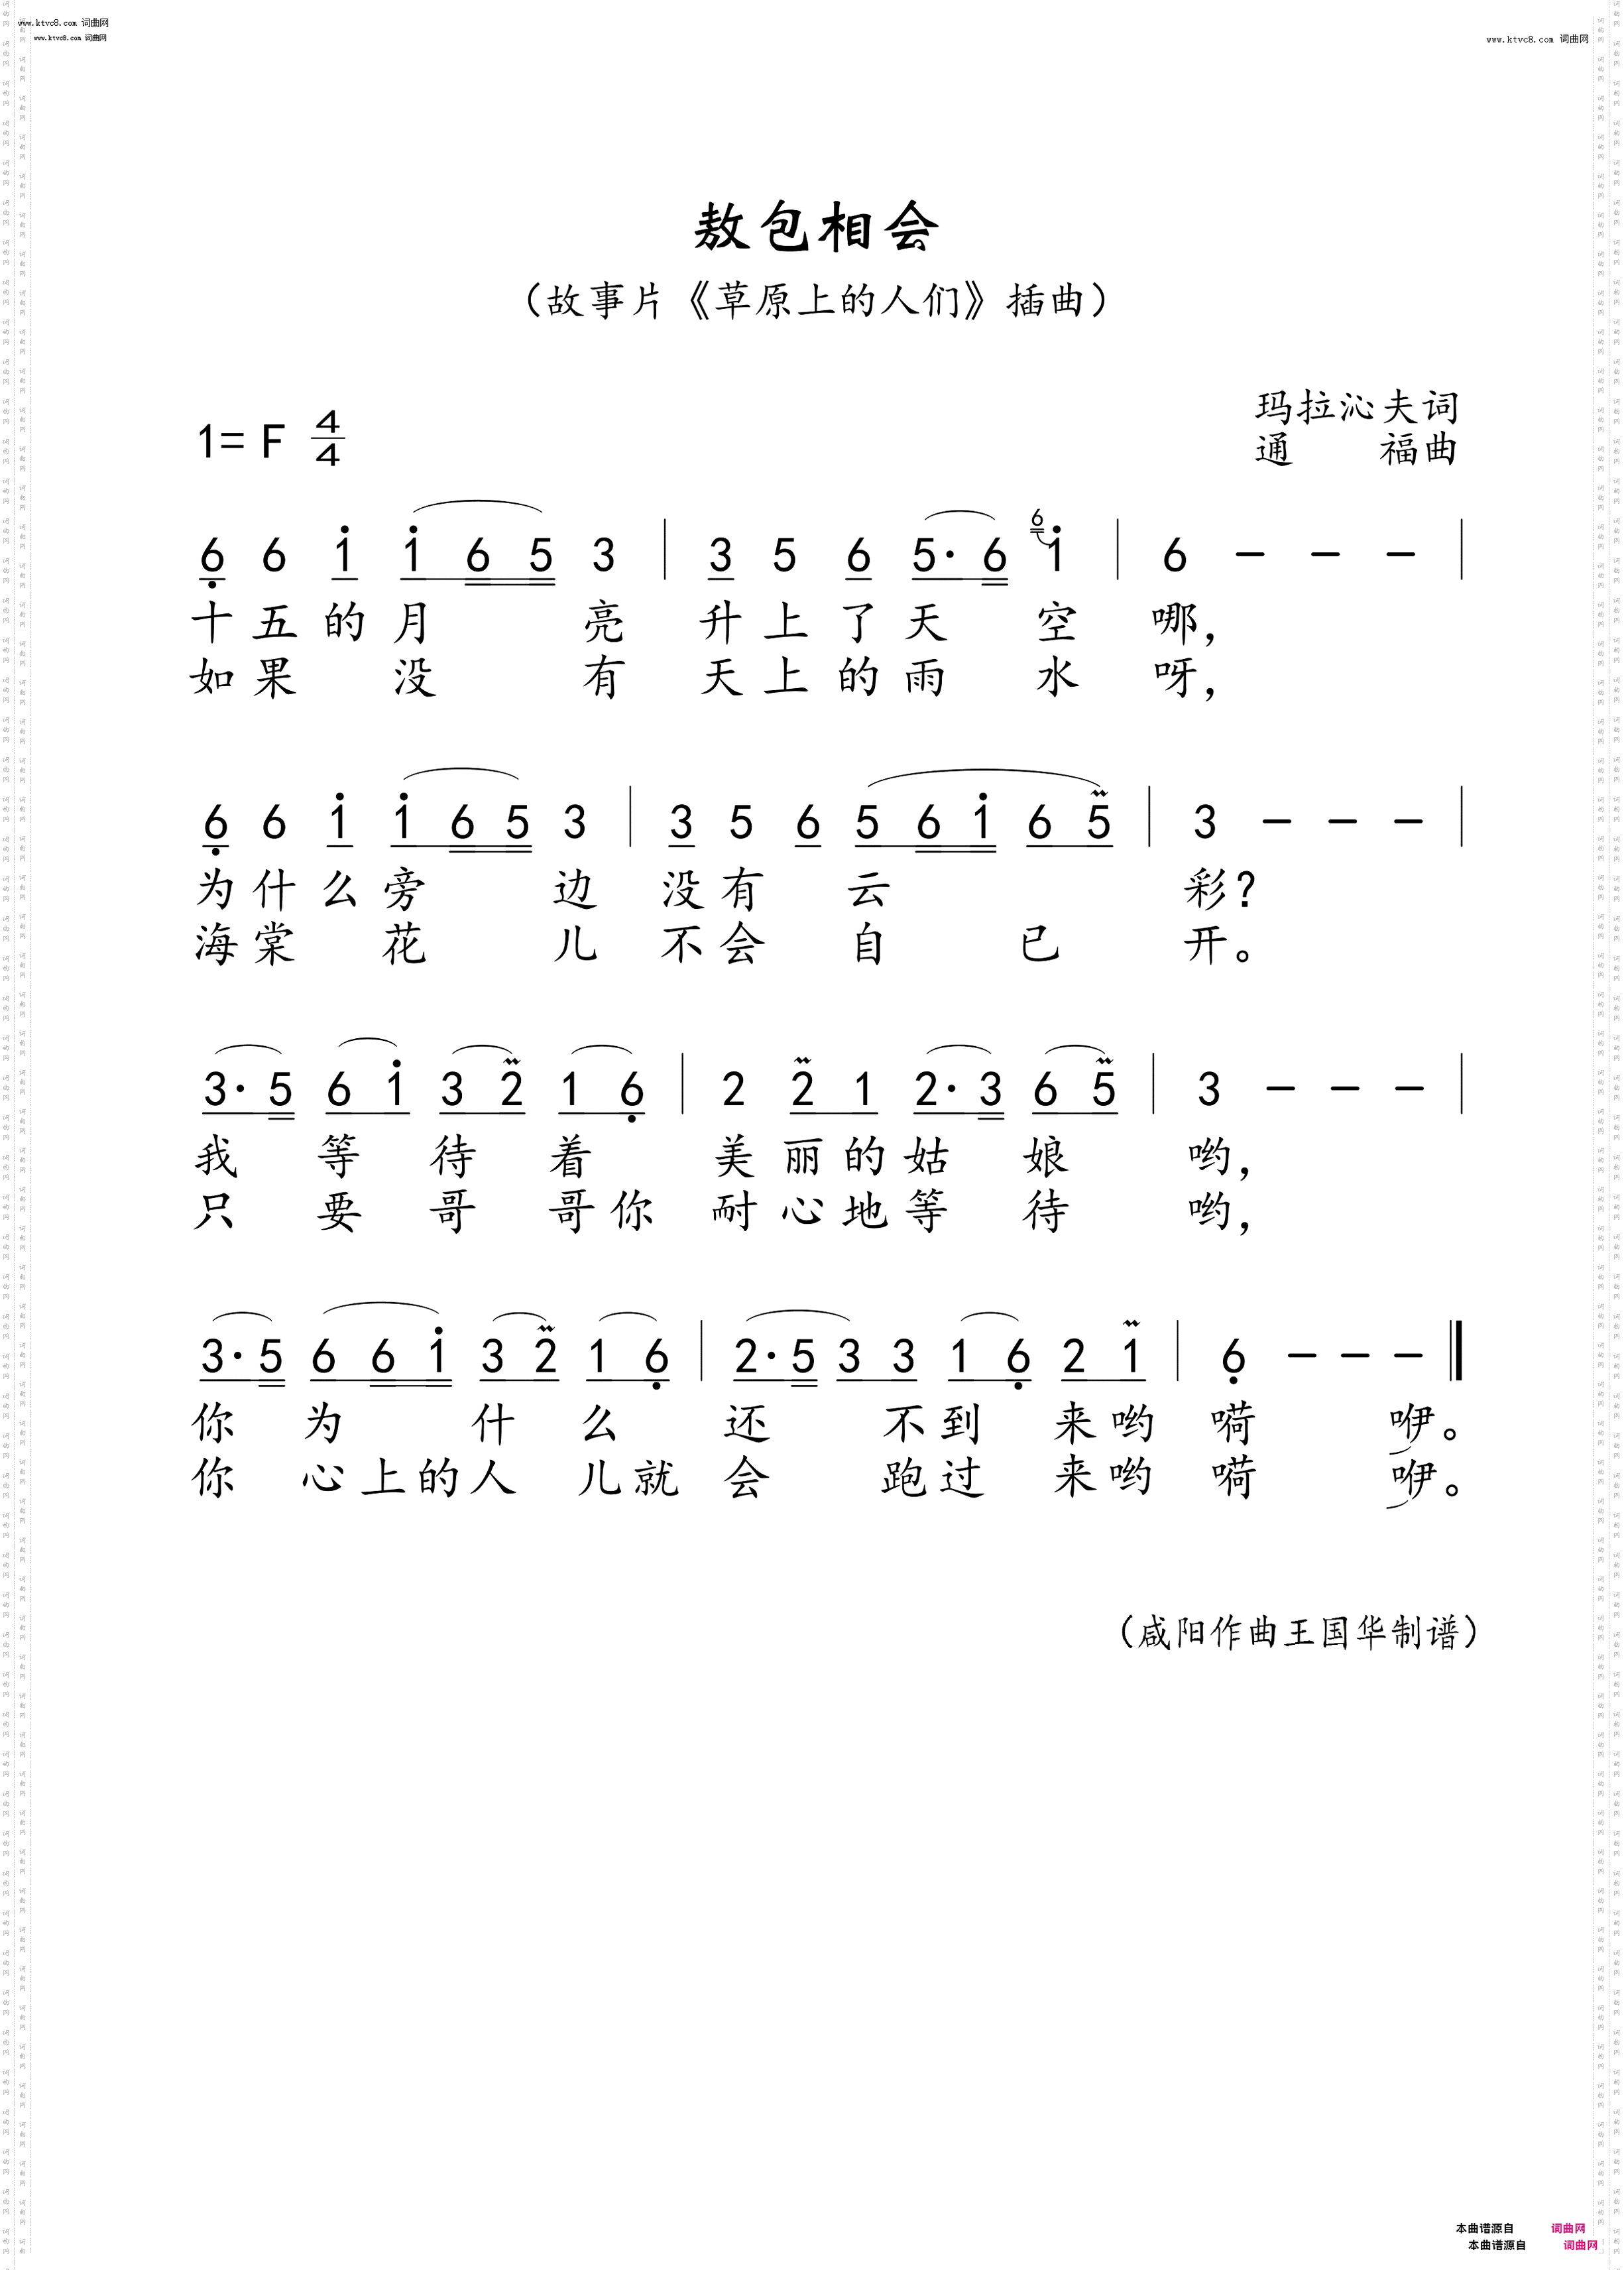 www.ktvc8.com 词曲网
www.ktvc8.com 词曲网
www.ktvc8.com 词曲网
敖包相会
（故事片《草原上的人们》插曲）
玛拉沁夫词
1= F 4/4
通 福曲
6̣ 6 1̇ 1̇ 6 5 3 | 3 5 6 5· 6 6 1̇ | 6 – – – |
十五的月 亮 升上了天 空 哪，
如果 没 有 天上的雨 水 呀，
6̣ 6 1̇ 1̇ 6 5 3 | 3 5 6 5 6 1̇ 6 5 | 3 – – – |
为什么旁 边 没有 云 彩？
海棠 花 儿 不会 自 已 开。
3· 5 6 1̇ 3 2 1 6̣ | 2 2 1 2· 3 6 5 | 3 – – – |
我 等 待 着 美丽的姑 娘 哟，
只 要 哥 哥你 耐心地等 待 哟，
3· 5 6 6 1̇ 3 2 1 6̣ | 2· 5 3 3 1 6̣ 2 1 | 6̣ – – – ‖
你 为 什 么 还 不到 来哟 嗬 咿。
你 心上的人 儿就 会 跑过 来哟 嗬 咿。
（咸阳作曲王国华制谱）
本曲谱源自 词曲网
本曲谱源自 词曲网